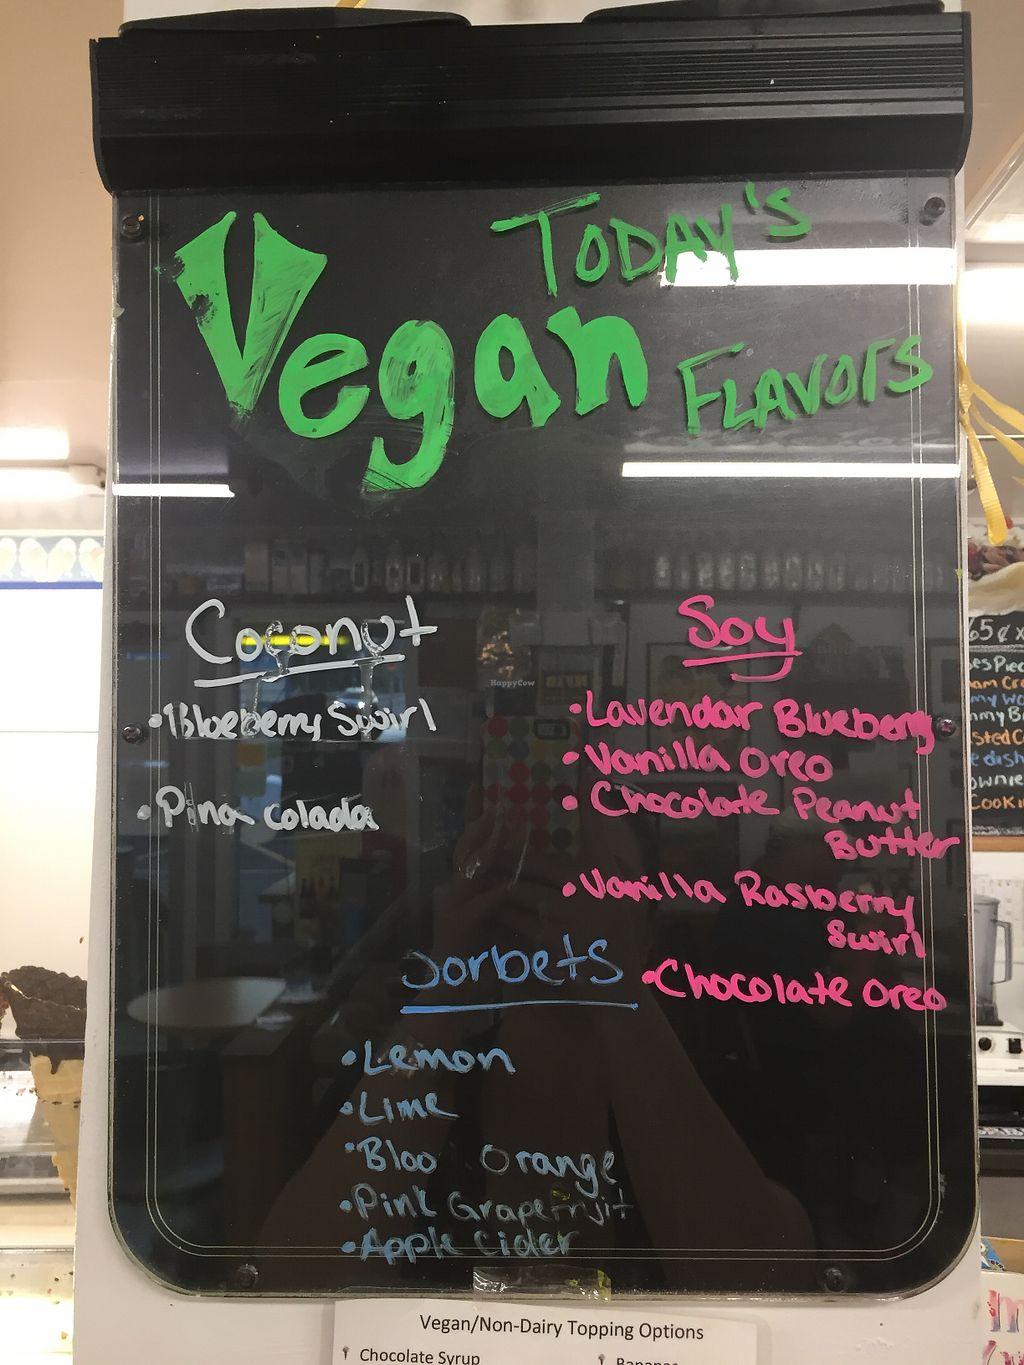 Today's
Vegan
Flavors
Coconut
• Blueberry Swirl
• Pina colada
Soy
• Lavendar Blueberry
• Vanilla Oreo
• Chocolate Peanut
Butter
• Vanilla Rasberry
Swirl
• Chocolate Oreo
Sorbets
• Lemon
• Lime
• Bloo Orange
• Pink Grapefruit
• Apple Cider
HappyCow
Vegan/Non-Dairy Topping Options
Chocolate Syrup
65¢